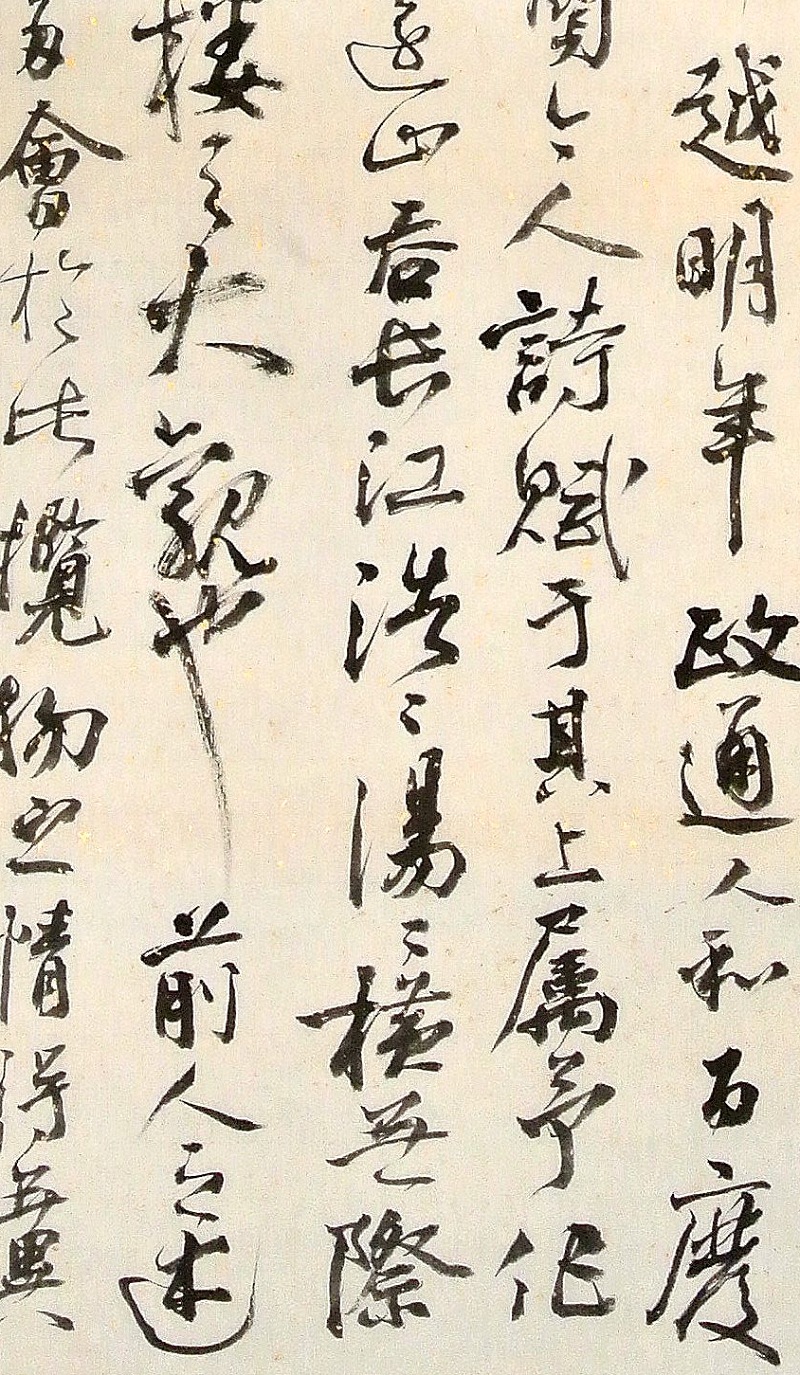 越明年政通人和百廢
賢今人詩賦于其上属予作
遠山吞長江浩〻湯〻橫無際
樓之大觀也前人之述
會於此攬物之情得無異